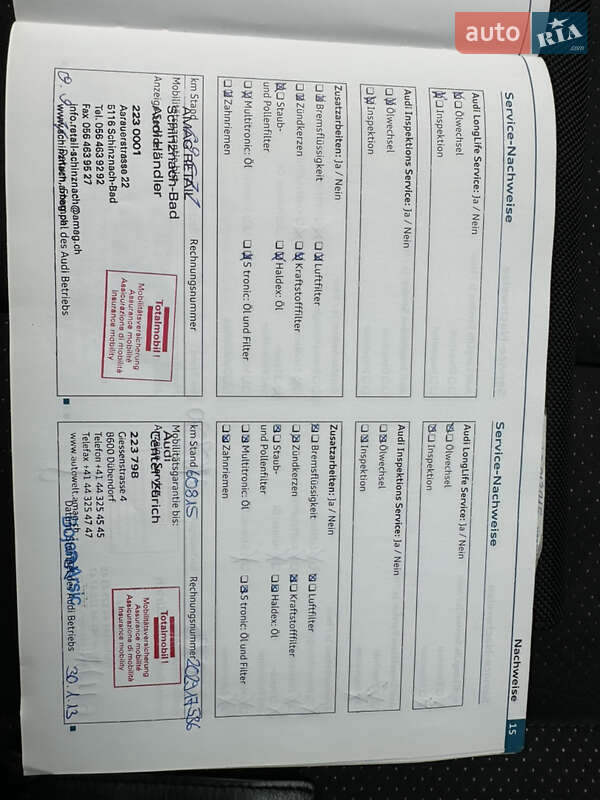 auto RIA.com
Nachweise 15
Service-Nachweise
Audi LongLife Service: Ja / Nein
Ölwechsel
Inspektion
Audi Inspektions Service: Ja / Nein
Ölwechsel
Inspektion
Zusatzarbeiten: Ja / Nein
Bremsflüssigkeit
Luftfilter
Zündkerzen
Kraftstofffilter
Staub-
und Pollenfilter
Haldex: Öl
Multitronic: Öl
S tronic: Öl und Filter
Zahnriemen
km Stand
Rechnungsnummer
AMAG RETAIL
Schinznach-Bad
Audi Händler
223 0001
Aarauerstrasse 22
5116 Schinznach-Bad
Tel. 056 463 92 92
Fax 056 463 95 27
info.retail-schinznach@amag.ch
Totalmobil!
Mobilitätsversicherung
Assurance mobilité
Assicurazione di mobilità
Insurance mobility
Service-Nachweise
Audi LongLife Service: Ja / Nein
Ölwechsel
Inspektion
Audi Inspektions Service: Ja / Nein
Ölwechsel
Inspektion
Zusatzarbeiten: Ja / Nein
Bremsflüssigkeit
Luftfilter
Zündkerzen
Kraftstofffilter
Staub-
und Pollenfilter
Haldex: Öl
Multitronic: Öl
S tronic: Öl und Filter
Zahnriemen
km Stand 60815
Rechnungsnummer
Mobilitätsgarantie bis:
Audi
Center Zürich
223 798
Giessenstrasse 4
8600 Dübendorf
Telefon +41 44 325 45 45
Telefax +41 44 325 47 47
Totalmobil!
Mobilitätsversicherung
Assurance mobilité
Assicurazione di mobilità
Insurance mobility
30.1.13